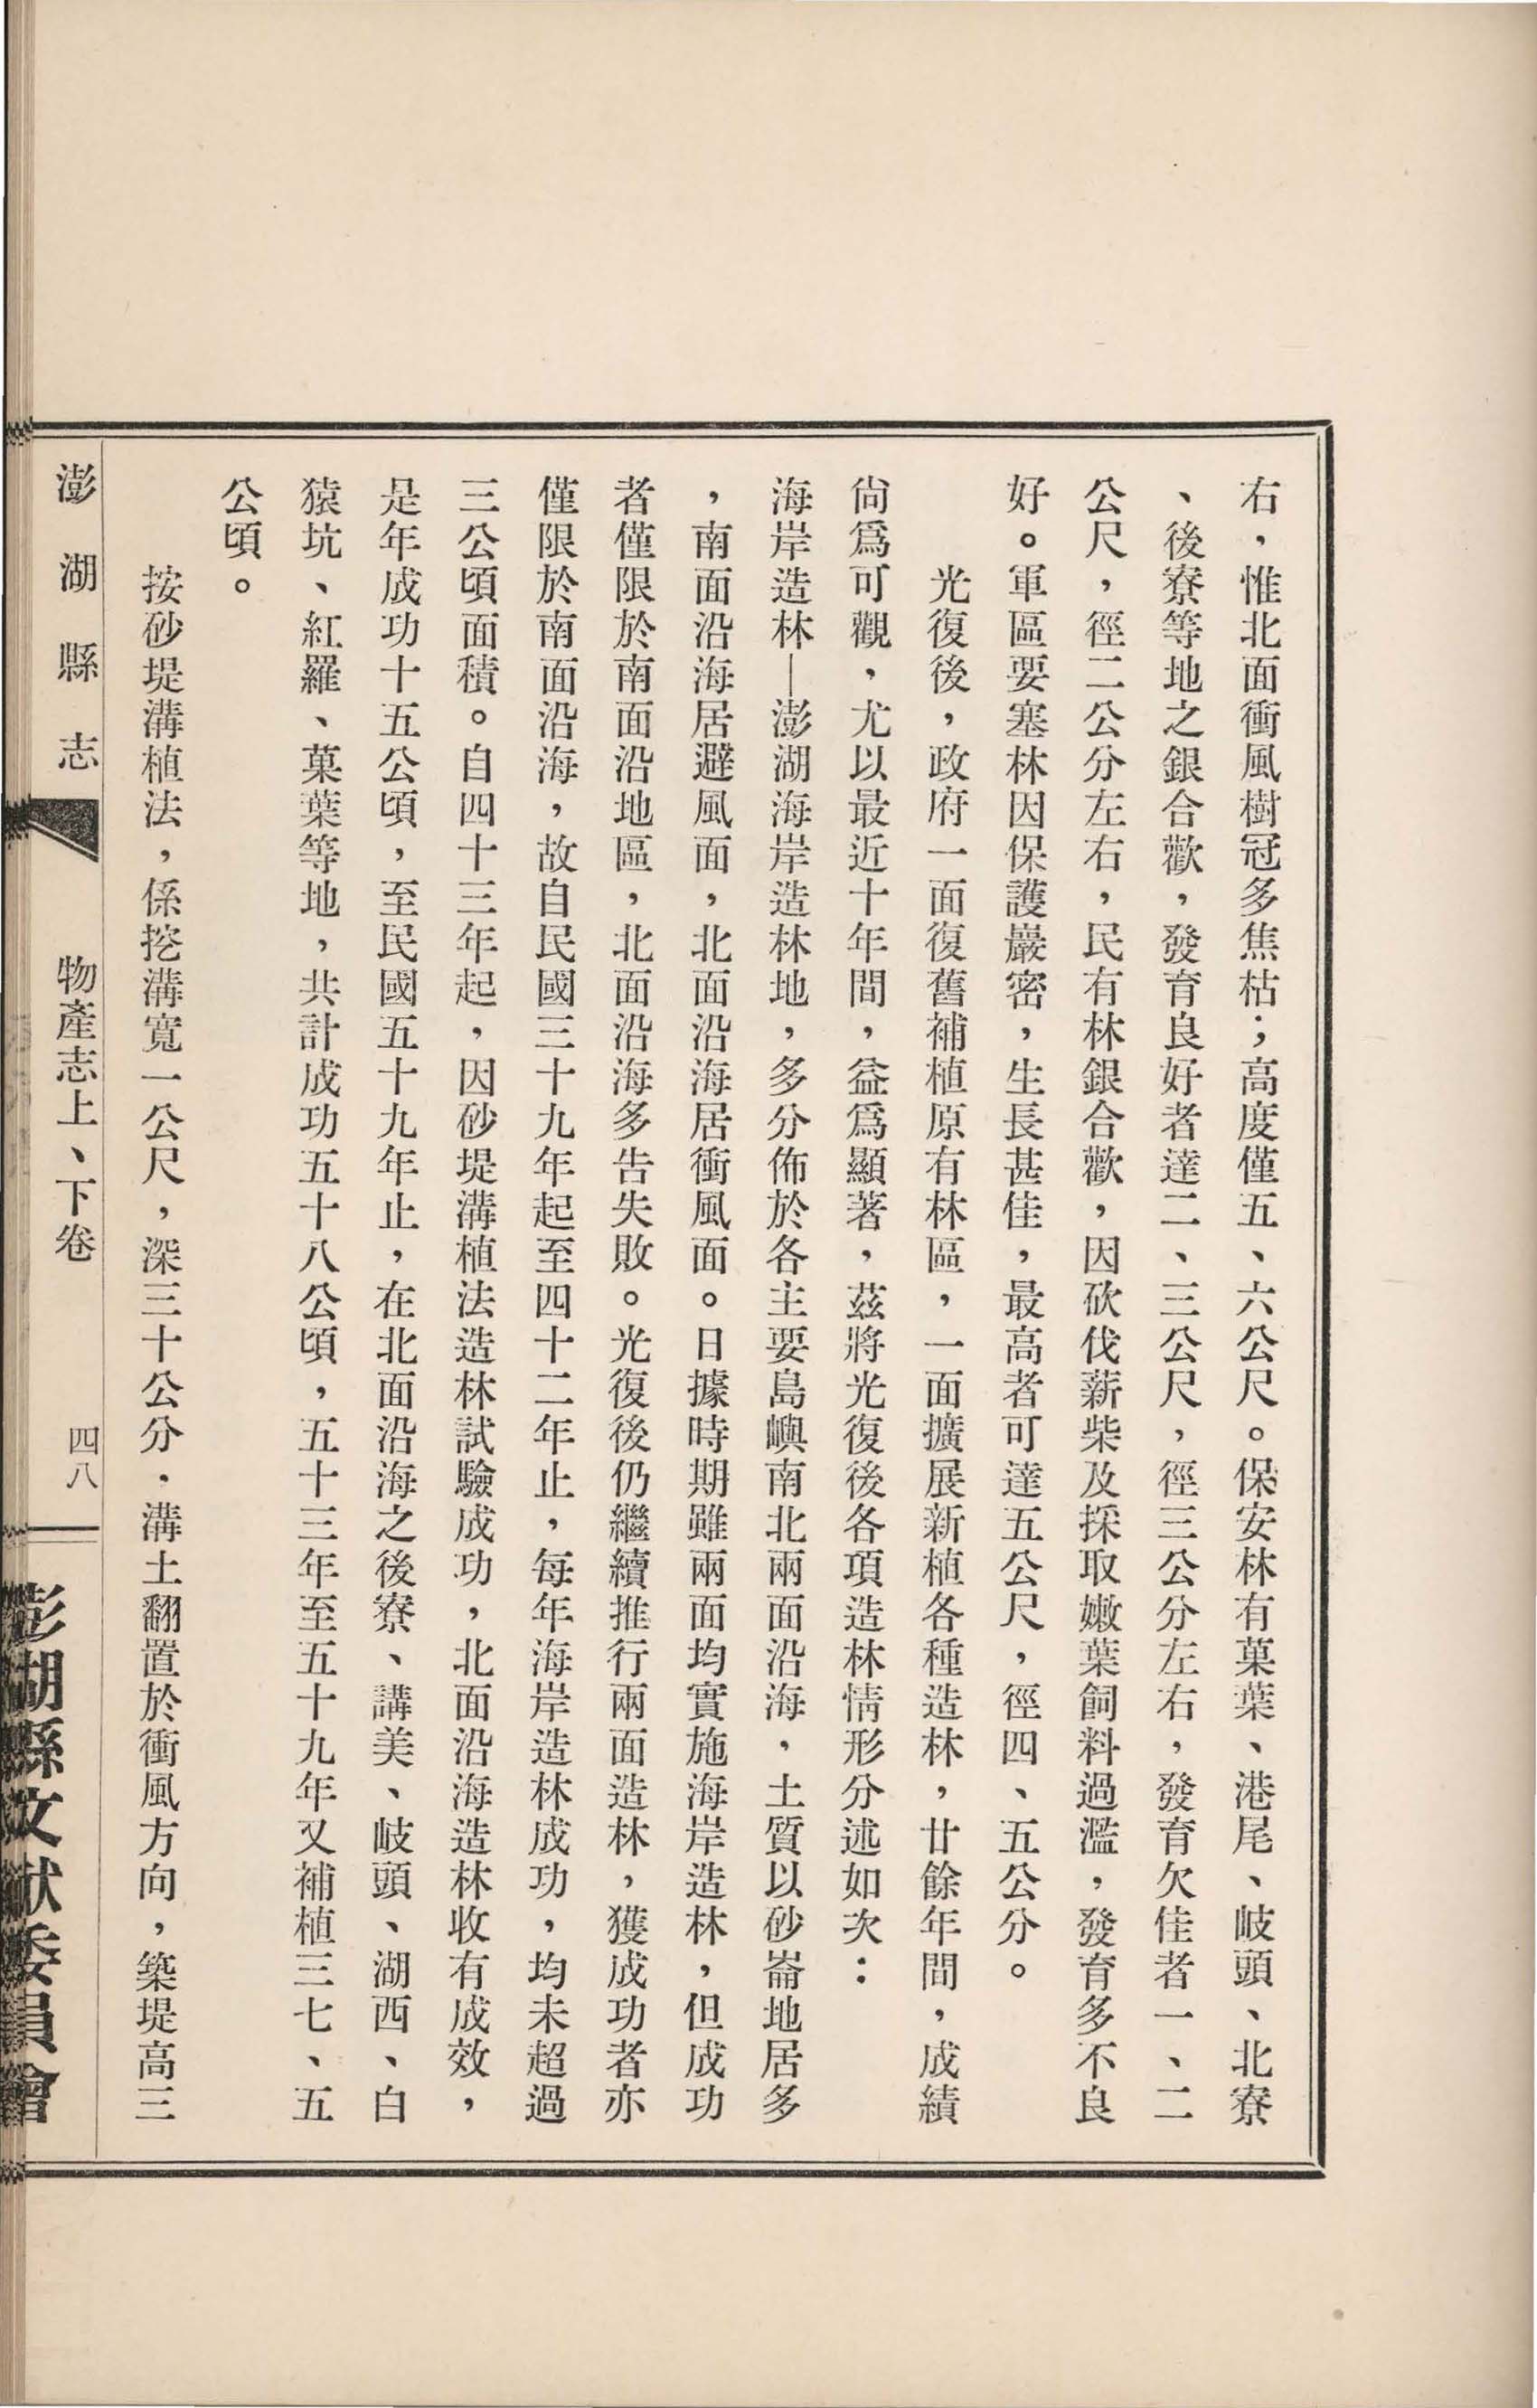 右，惟北面衝風樹冠多焦枯；高度僅五、六公尺。保安林有菓葉、港尾、岐頭、北寮
、後寮等地之銀合歡，發育良好者達二、三公尺，徑三公分左右，發育欠佳者一、二
公尺，徑二公分左右，民有林銀合歡，因砍伐薪柴及採取嫩葉飼料過濫，發育多不良
好。軍區要塞林因保護嚴密，生長甚佳，最高者可達五公尺，徑四、五公分。
光復後，政府一面復舊補植原有林區，一面擴展新植各種造林，廿餘年間，成績
尙爲可觀，尤以最近十年間，益爲顯著，茲將光復後各項造林情形分述如次：
海岸造林—澎湖海岸造林地，多分佈於各主要島嶼南北兩面沿海，土質以砂崙地居多
，南面沿海居避風面，北面沿海居衝風面。日據時期雖兩面均實施海岸造林，但成功
者僅限於南面沿地區，北面沿海多告失敗。光復後仍繼續推行兩面造林，獲成功者亦
僅限於南面沿海，故自民國三十九年起至四十二年止，每年海岸造林成功，均未超過
三公頃面積。自四十三年起，因砂堤溝植法造林試驗成功，北面沿海造林收有成效，
是年成功十五公頃，至民國五十九年止，在北面沿海之後寮、講美、岐頭、湖西、白
猿坑、紅羅、菓葉等地，共計成功五十八公頃，五十三年至五十九年又補植三七、五
公頃。
按砂堤溝植法，係挖溝寬一公尺，深三十公分．溝土翻置於衝風方向，築堤高三
澎湖縣志 物產志上、下卷 四八 澎湖縣文献委員會